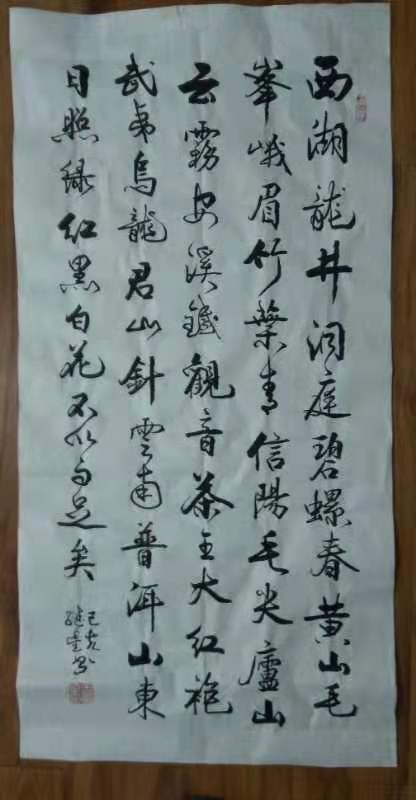 西湖龍井洞庭碧螺春黄山毛
峯峨眉竹葉青信陽毛尖廬山
云霧安溪鐵觀音茶王大红袍
武夷烏龍君山針雲南普洱山東
日照绿红黑白花不以足矣
己亥
书